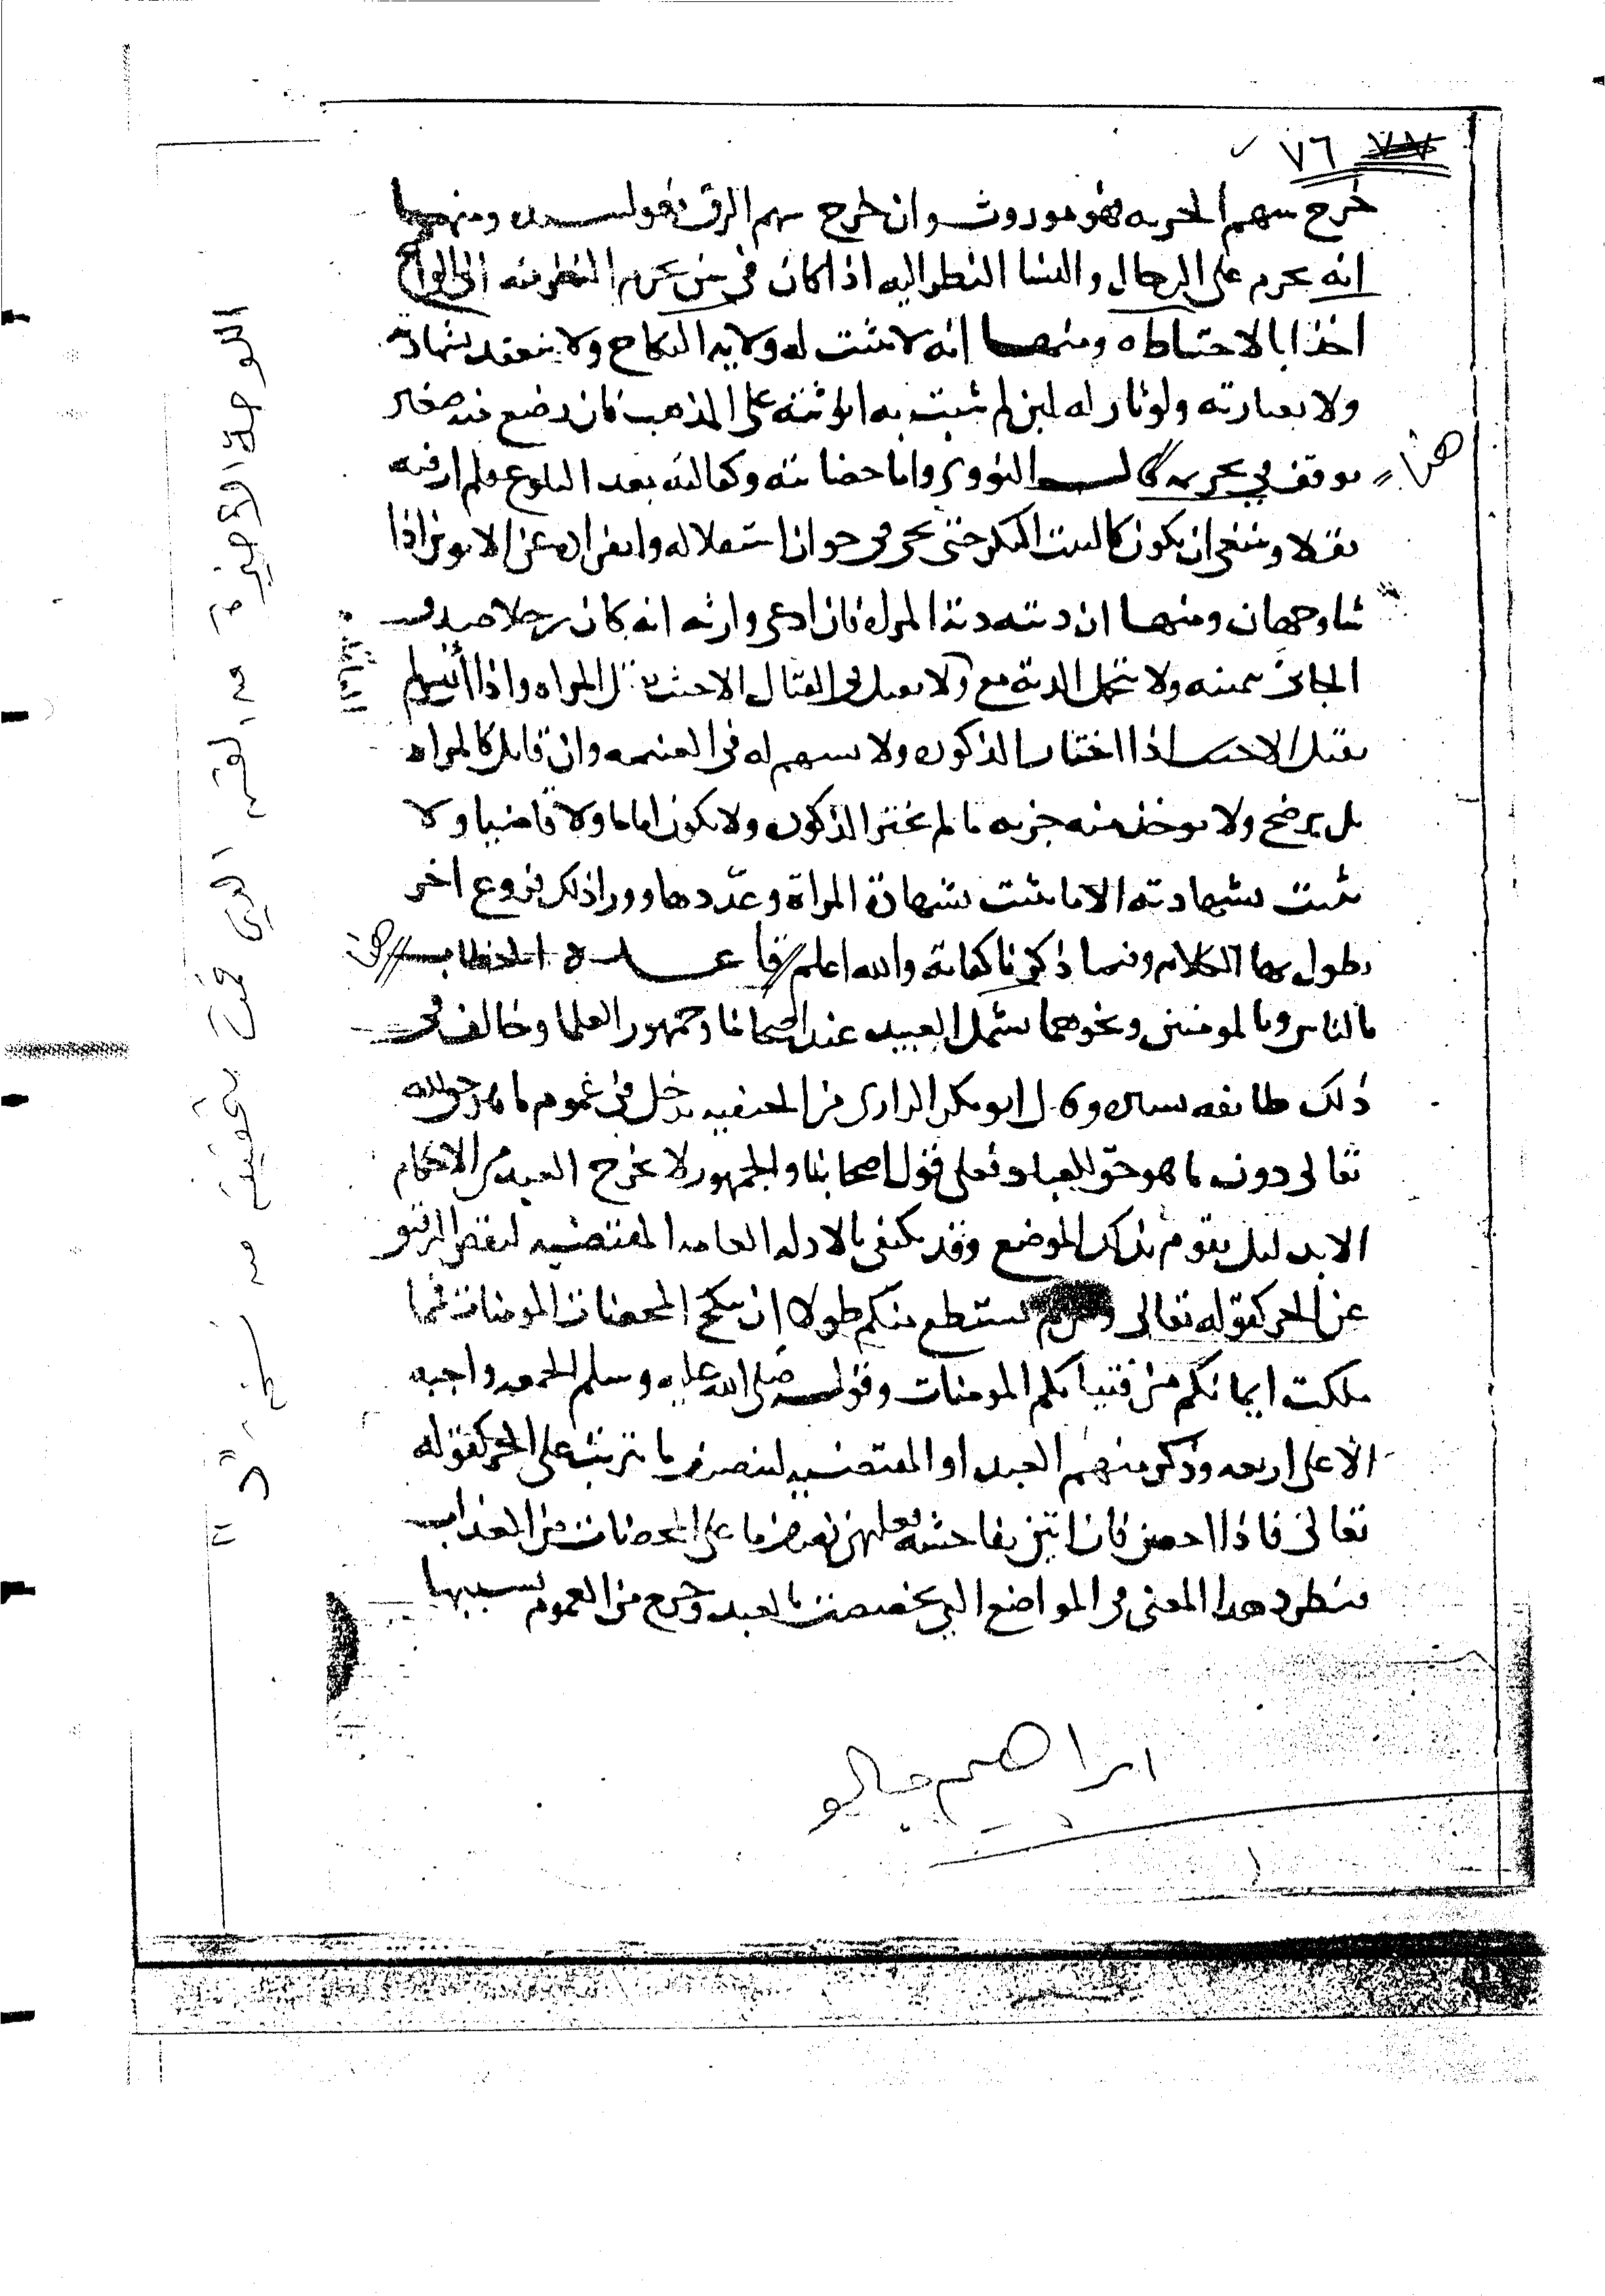 ٧٦
خرج سهم الحريه فهو موروث وان خرج سهم الرق فهو لسيده ومنها
انه يحرم على الرجال والنسا النظر اليه اذا كان في سن يحرم النظر منه الى الواضح
اخذا بالاحتياط ومنها انه لا تثبت له ولايه النكاح ولا ينعقد بشهادته
ولا بعبارته ولو ثار له لبن لم تثبت به انوثته على المذهب فان رضع منه صغير
هنا = توقف في تحريمه قال النووي واما حضانته وكفالته بعد البلوغ فلم ار فيه
نقلا وينبغي ان يكون كالبنت البكر حتى يجي في جواز استقلاله وانفراده عن الابوين اذا
شا وجهان ومنها ان ديته دية المراه فان ادعى وارثه انه كان رجلا صدق
الجاني بيمينه ولا يتحمل الدية مع ولا يقتل في القتال الا حيث تقتل المراه واذا اسلم
يقتل الا اذا اختار الذكوره ولا يسهم له في الغنيمه وان قاتل كالمراه
بل يرضخ ولا توخذ منه جزيه ما لم يختر الذكوره ولا يكون اماما ولا قاضيا ولا
يثبت بشهادته الا ما يثبت بشهادة المراة وعددها وورا ذلك فروع اخر
يطول بها الكلام وفيما ذكرنا كفاية والله اعلم // قاعده الخطاب //
بالناس وبالمومنين ونحوهما يشمل العبيد عند اصحابنا وجمهور العلما وخالف في
ذلك طايفه يسيره وقال ابو بكر الرازي من الحنفيه يدخل في عموم ما هو حق لله
تعالى دون ما هو حق للعباد فعلى قول اصحابنا والجمهور لا يخرج العبد من الاحكام
الا بدليل يقوم بذلك الموضع وقد يكتفى بالادله العامه المقتضيه لنقص الرقيق
عن الحر كقوله تعالى ومن لم يستطع منكم طولا ان ينكح المحصنات المومنات فمما
ملكت ايمانكم من فتياتكم المومنات وقوله صلى الله عليه وسلم الجمعه واجبه
الا على اربعه وذكر منهم العبد او المقتضيه لتنصيف ما ترتب على الحر كقوله
تعالى فاذا احصن فان اتين بفاحشه فعليهن نصف ما على المحصنات من العذاب
فيطرد هذا المعنى في المواضع التي تخصصت بالعبد وخرج من العموم بسببها
ابراهيم جالو
اللوحة الأخيرة من القسم الذي قمت بتحقيقه من نسخة ق